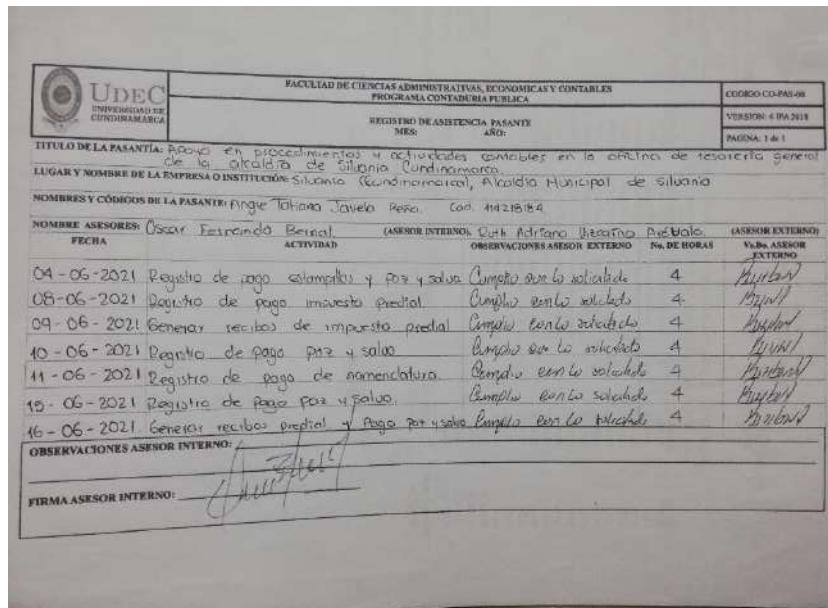 UDEC
UNIVERSIDAD DE
CUNDINAMARCA
FACULTAD DE CIENCIAS ADMINISTRATIVAS, ECONOMICAS Y CONTABLES
PROGRAMA CONTADURIA PUBLICA
REGISTRO DE ASISTENCIA PASANTE
MES: AÑO:
CODIGO CO-PAS-08
VERSION: 4 IPA 2018
PAGINA: 1 de 1
TITULO DE LA PASANTÍA: Apoyo en procedimientos y actividades contables en la oficina de tesorería general
de la alcaldía de Silvania Cundinamarca.
LUGAR Y NOMBRE DE LA EMPRESA O INSTITUCIÓN: Silvania (Cundinamarca), Alcaldía Municipal de silvania
NOMBRES Y CÓDIGOS DE LA PASANTE: Angie Tatiana Javela Peña. Cod.
NOMBRE ASESORES: Oscar Fernando Bernal. (ASESOR INTERNO), Ruth Adriana (ASESOR EXTERNO)
FECHA ACTIVIDAD OBSERVACIONES ASESOR EXTERNO No. DE HORAS Vo.Bo. ASESOR EXTERNO
04-06-2021 Registro de pago estampillas y paz y salvo Cumplio con lo solicitado 4
08-06-2021 Registro de pago impuesto predial Cumplio con lo solicitado 4
09-06-2021 Generar recibos de impuesto predial Cumplio con lo solicitado 4
10-06-2021 Registro de pago paz y salvo Cumplio con lo solicitado 4
11-06-2021 Registro de pago de nomenclatura. Cumplio con lo solicitado 4
15-06-2021 Registro de Pago paz y salvo. Cumplio con lo solicitado 4
16-06-2021 Generar recibos predial y Pago paz y salvo Cumplio con lo solicitado 4
OBSERVACIONES ASESOR INTERNO:
FIRMA ASESOR INTERNO: